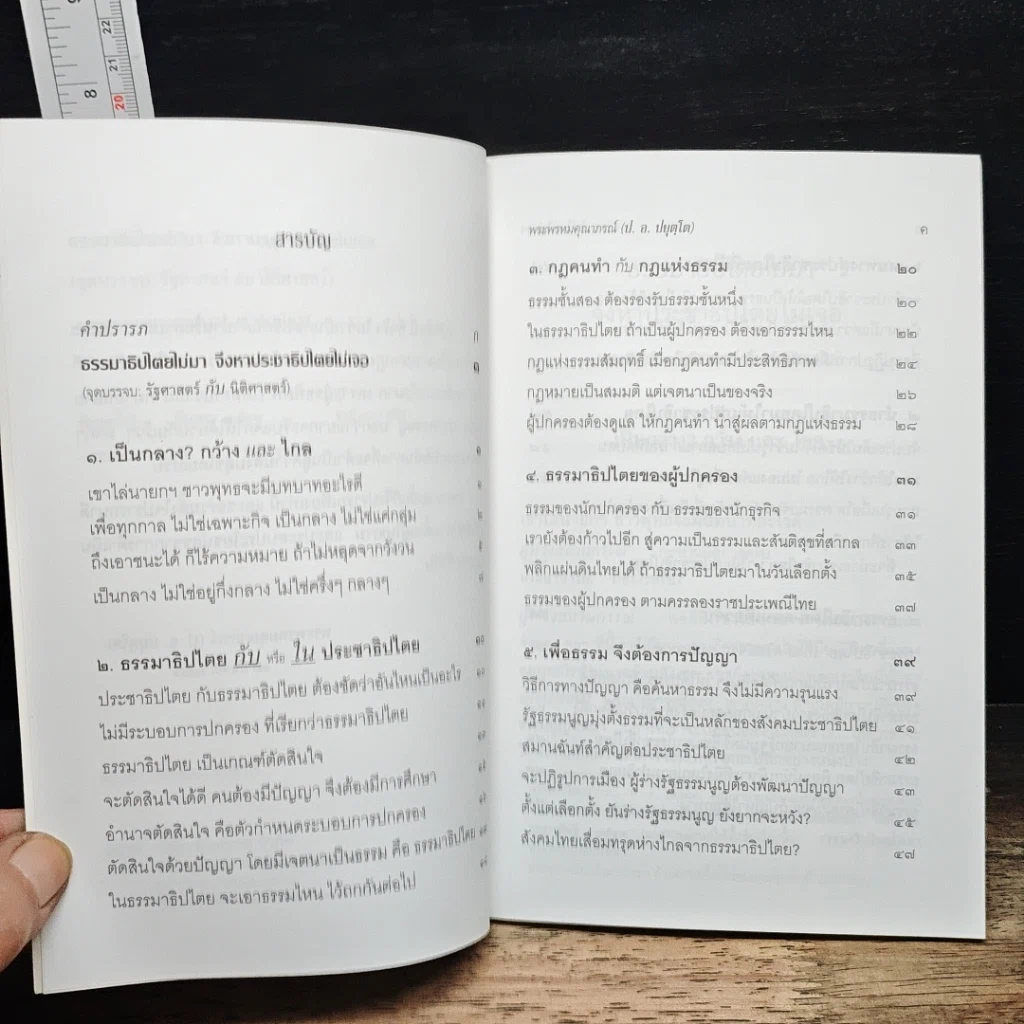 สารบัญ
คำปรารภ ก
ธรรมาธิปไตยไม่มา จึงหาประชาธิปไตยไม่เจอ ๑
(จุดบรรจบ: รัฐศาสตร์ กับ นิติศาสตร์)
๑. เป็นกลาง? กว้าง และ ไกล ๑
เขาไล่นายกฯ ชาวพุทธจะมีบทบาทอะไรดี ๑
เพื่อทุกกาล ไม่ใช่เฉพาะกิจ เป็นกลาง ไม่ใช่แค่กลุ่ม ๒
ถึงเอาชนะได้ ก็ไร้ความหมาย ถ้าไม่หลุดจากวังวน
เป็นกลาง ไม่ใช่อยู่กึ่งกลาง ไม่ใช่ครึ่งๆ กลางๆ
๒. ธรรมาธิปไตย กับ หรือ ใน ประชาธิปไตย ๑๐
ประชาธิปไตย กับธรรมาธิปไตย ต้องชัดว่าอันไหนเป็นอะไร
ไม่มีระบอบการปกครอง ที่เรียกว่าธรรมาธิปไตย
ธรรมาธิปไตย เป็นเกณฑ์ตัดสินใจ
จะตัดสินใจได้ดี คนต้องมีปัญญา จึงต้องมีการศึกษา
อำนาจตัดสินใจ คือตัวกำหนดระบอบการปกครอง
ตัดสินใจด้วยปัญญา โดยมีเจตนาเป็นธรรม คือ ธรรมาธิปไตย
ในธรรมาธิปไตย จะเอาธรรมไหน ไว้ถกกันต่อไป
20
21
22
8
9
พระพรหมคุณาภรณ์ (ป. อ. ปยุตฺโต) ค
๓. กฎคนทำ กับ กฎแห่งธรรม ๒๐
ธรรมชั้นสอง ต้องรองรับธรรมชั้นหนึ่ง ๒๐
ในธรรมาธิปไตย ถ้าเป็นผู้ปกครอง ต้องเอาธรรมไหน ๒๒
กฎแห่งธรรมสัมฤทธิ์ เมื่อกฎคนทำมีประสิทธิภาพ ๒๔
กฎหมายเป็นสมมติ แต่เจตนาเป็นของจริง ๒๖
ผู้ปกครองต้องดูแล ให้กฎคนทำ นำสู่ผลตามกฎแห่งธรรม ๒๘
๔. ธรรมาธิปไตยของผู้ปกครอง ๓๑
ธรรมของนักปกครอง กับ ธรรมของนักธุรกิจ ๓๑
เรายังต้องก้าวไปอีก สู่ความเป็นธรรมและสันติสุขที่สากล ๓๓
พลิกแผ่นดินไทยได้ ถ้าธรรมาธิปไตยมาในวันเลือกตั้ง ๓๕
ธรรมของผู้ปกครอง ตามครรลองราชประเพณีไทย ๓๗
๕. เพื่อธรรม จึงต้องการปัญญา ๓๙
วิธีการทางปัญญา คือค้นหาธรรม จึงไม่มีความรุนแรง ๓๙
รัฐธรรมนูญมุ่งตั้งธรรมที่จะเป็นหลักของสังคมประชาธิปไตย ๔๑
สมานฉันท์สำคัญต่อประชาธิปไตย ๔๒
จะปฏิรูปการเมือง ผู้ร่างรัฐธรรมนูญต้องพัฒนาปัญญา ๔๓
ตั้งแต่เลือกตั้ง ยันร่างรัฐธรรมนูญ ยังยากจะหวัง? ๔๕
สังคมไทยเสื่อมทรุดห่างไกลจากธรรมาธิปไตย? ๔๗